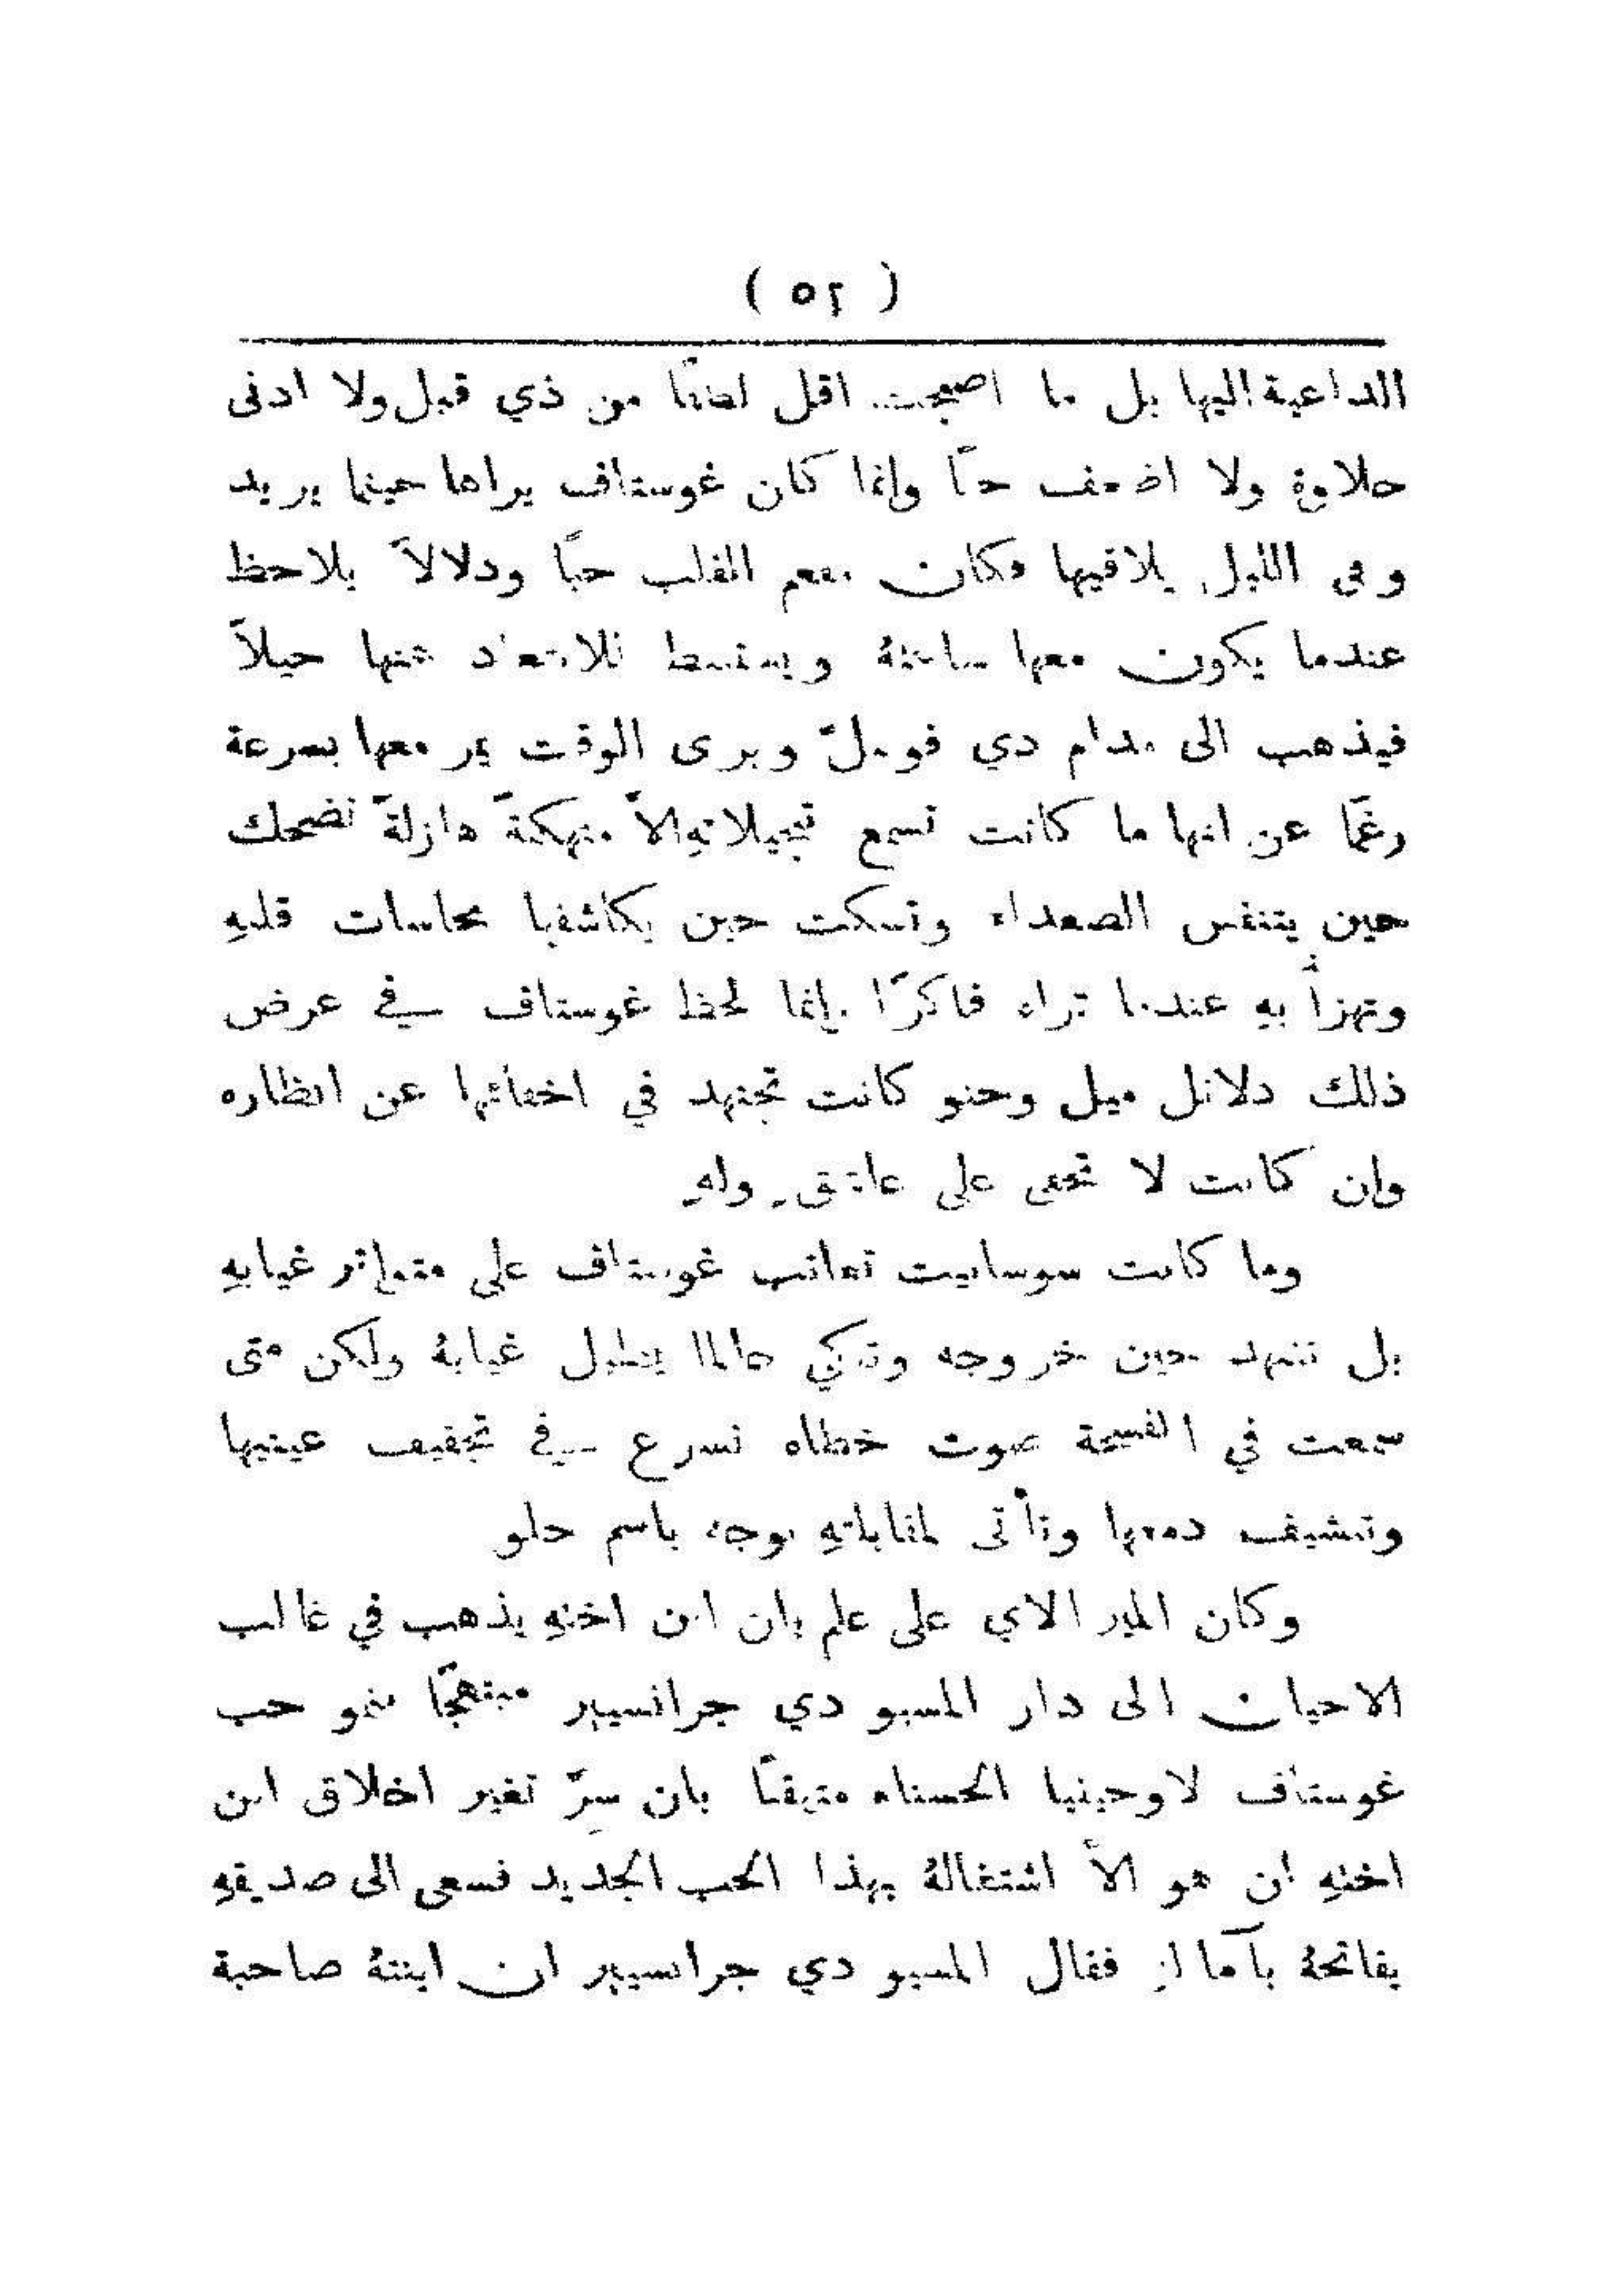 ( ٥٢ )
الداعية اليها بل ما اصبحت اقل لطفًا من ذي قبل ولا ادنى
حلاوة ولا اضعف حبًّا وانما كان غوستاف يراها حينما يريد
وفي الليل يلاقيها فكان مفعم القلب حبًّا ودلالاً يلاحظ
عندما يكون معها ساعتهُ ويستنبط للابتعاد عنها حيلاً
فيذهب الى مدام دي فومل ويرى الوقت يمر معها بسرعة
رغمًا عن انها ما كانت تسمع تبجيلاتهِ الاَّ متهكمةً هازلةً تضحك
حين يتنفس الصعداء وتسكت حين يكاشفها بحاسات قلبهِ
وتهزأُ بهِ عندما تراه فاكرًا وإنما لحظ غوستاف في عرض
ذلك دلائل ميل وحنو كانت تجتهد في اخفائها عن انظاره
وان كانت لا تخفى على عاشق ولهٍ
وما كانت سوسانيت تعاتب غوستاف على متواتر غيابهِ
بل تتنهد حين خروجه وتبكي طالما يطول غيابهُ ولكن متى
سمعت في الفسحة صوت خطاه تسرع في تجفيف عينيها
وتنشيف دمعها وتأْتي لمقابلتهِ بوجه باسم حلو
وكان المير الاي على علم بان ابن اختهِ يذهب في غالب
الاحيان الى دار المسيو دي جرانسيير مبتهجًا بنمو حب
غوستاف لاوجينيا الحسناء متيقنًا بان سرّ تغير اخلاق ابن
اختهِ ان هو الاَّ اشتغالهُ بهذا الحب الجديد فسعى الى صديقهِ
يفاتحهُ بآماله فقال المسيو دي جرانسيير ان ابنتهُ صاحبة